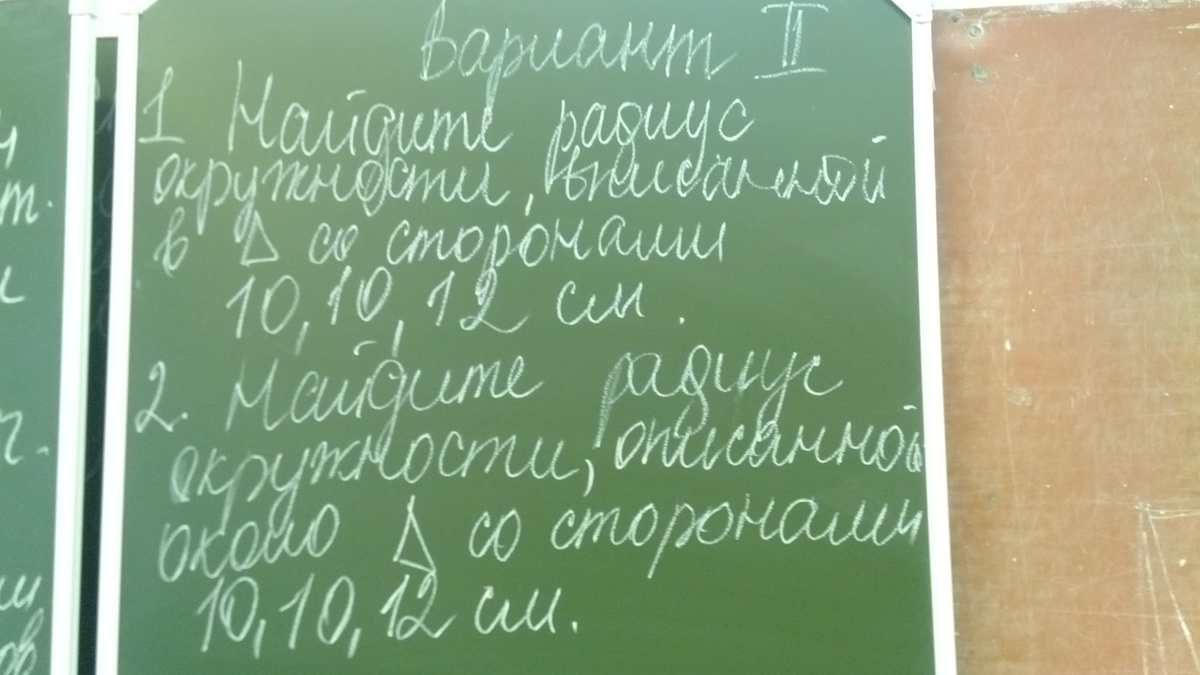 Вариант II
1 Найдите радиус
окружности, вписанной
в Δ со сторонами
10, 10, 12 см.
2. Найдите радиус
окружности, описанной
около Δ со сторонами
10, 10, 12 см.